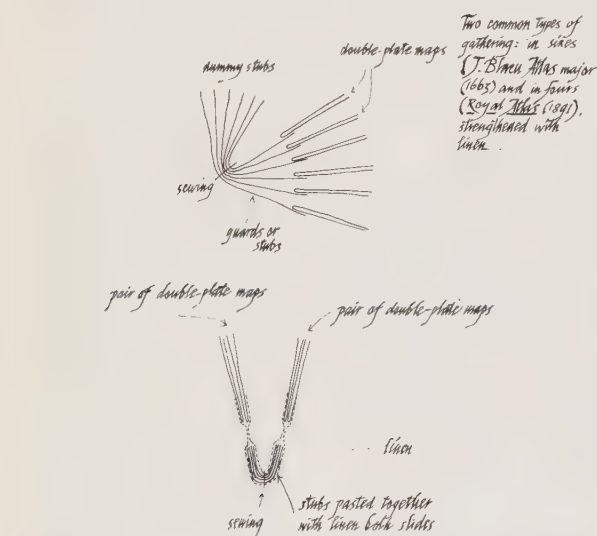 Two common types of
gathering: in sixes
(J. Blaeu Atlas major
(1663) and in fours
(Royal Atlas (1891),
strengthened with
linen.
double-plate maps
dummy stubs
sewing
guards or
stubs
pair of double-plate maps
pair of double-plate maps
linen
stubs pasted together
with linen both slides
sewing